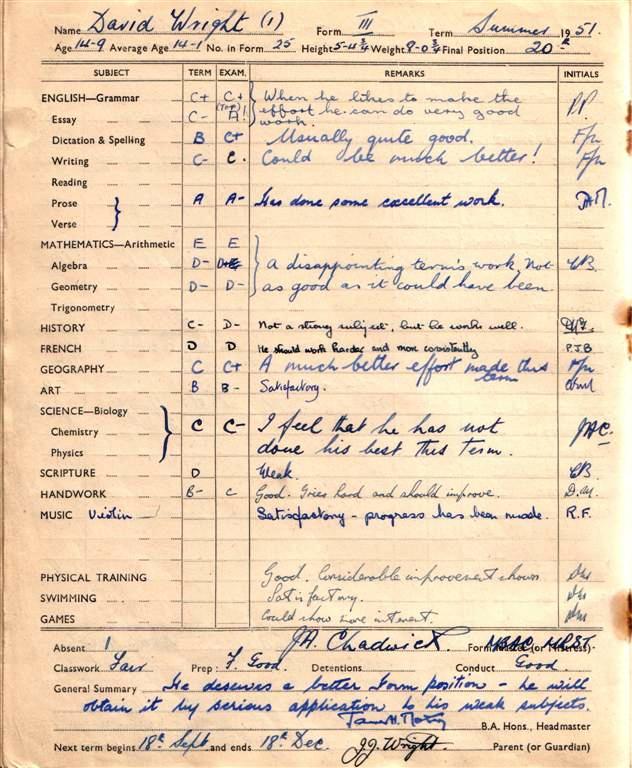 Name David Wright (1) Form III Term Summer 1951.
Age 14-9 Average Age 14-1 No. in Form 25 Height 5-4¾ Weight 8-0¾ Final Position 20th
SUBJECT TERM EXAM. REMARKS INITIALS
ENGLISH—Grammar C+ C+ When he likes to make the
(Top)
Essay C- A! effort he can do very good work. P.P.
Dictation & Spelling B C+ Usually quite good.
Writing C- C. Could be much better!
Reading
Prose A A- Has done some excellent work.
Verse
MATHEMATICS—Arithmetic E E
Algebra D- A disappointing term's work. Not
Geometry D- D- as good as it could have been.
Trigonometry
HISTORY C- D- Not a strong subject, but he works well.
FRENCH D D He should work harder and more consistently P.J.B
GEOGRAPHY C C+ A much better effort made this term
ART B B- Satisfactory.
SCIENCE—Biology
Chemistry C C- I feel that he has not
Physics done his best this Term.
SCRIPTURE D Weak.
HANDWORK B- C Good. Tries hard and should improve. D.M.
MUSIC Violin Satisfactory - progress has been made. R.F.
PHYSICAL TRAINING Good. Considerable improvement shown
SWIMMING Satisfactory.
GAMES Could show more interest.
Absent 1 J.A. Chadwick. Form Master (or Mistress)
Classwork Fair Prep: F. Good. Detentions Conduct Good.
General Summary He deserves a better form position - he will
obtain it by serious application to his weak subjects.
B.A. Hons., Headmaster
Next term begins 18th Sept and ends 18th Dec. J.J. Wright. Parent (or Guardian)